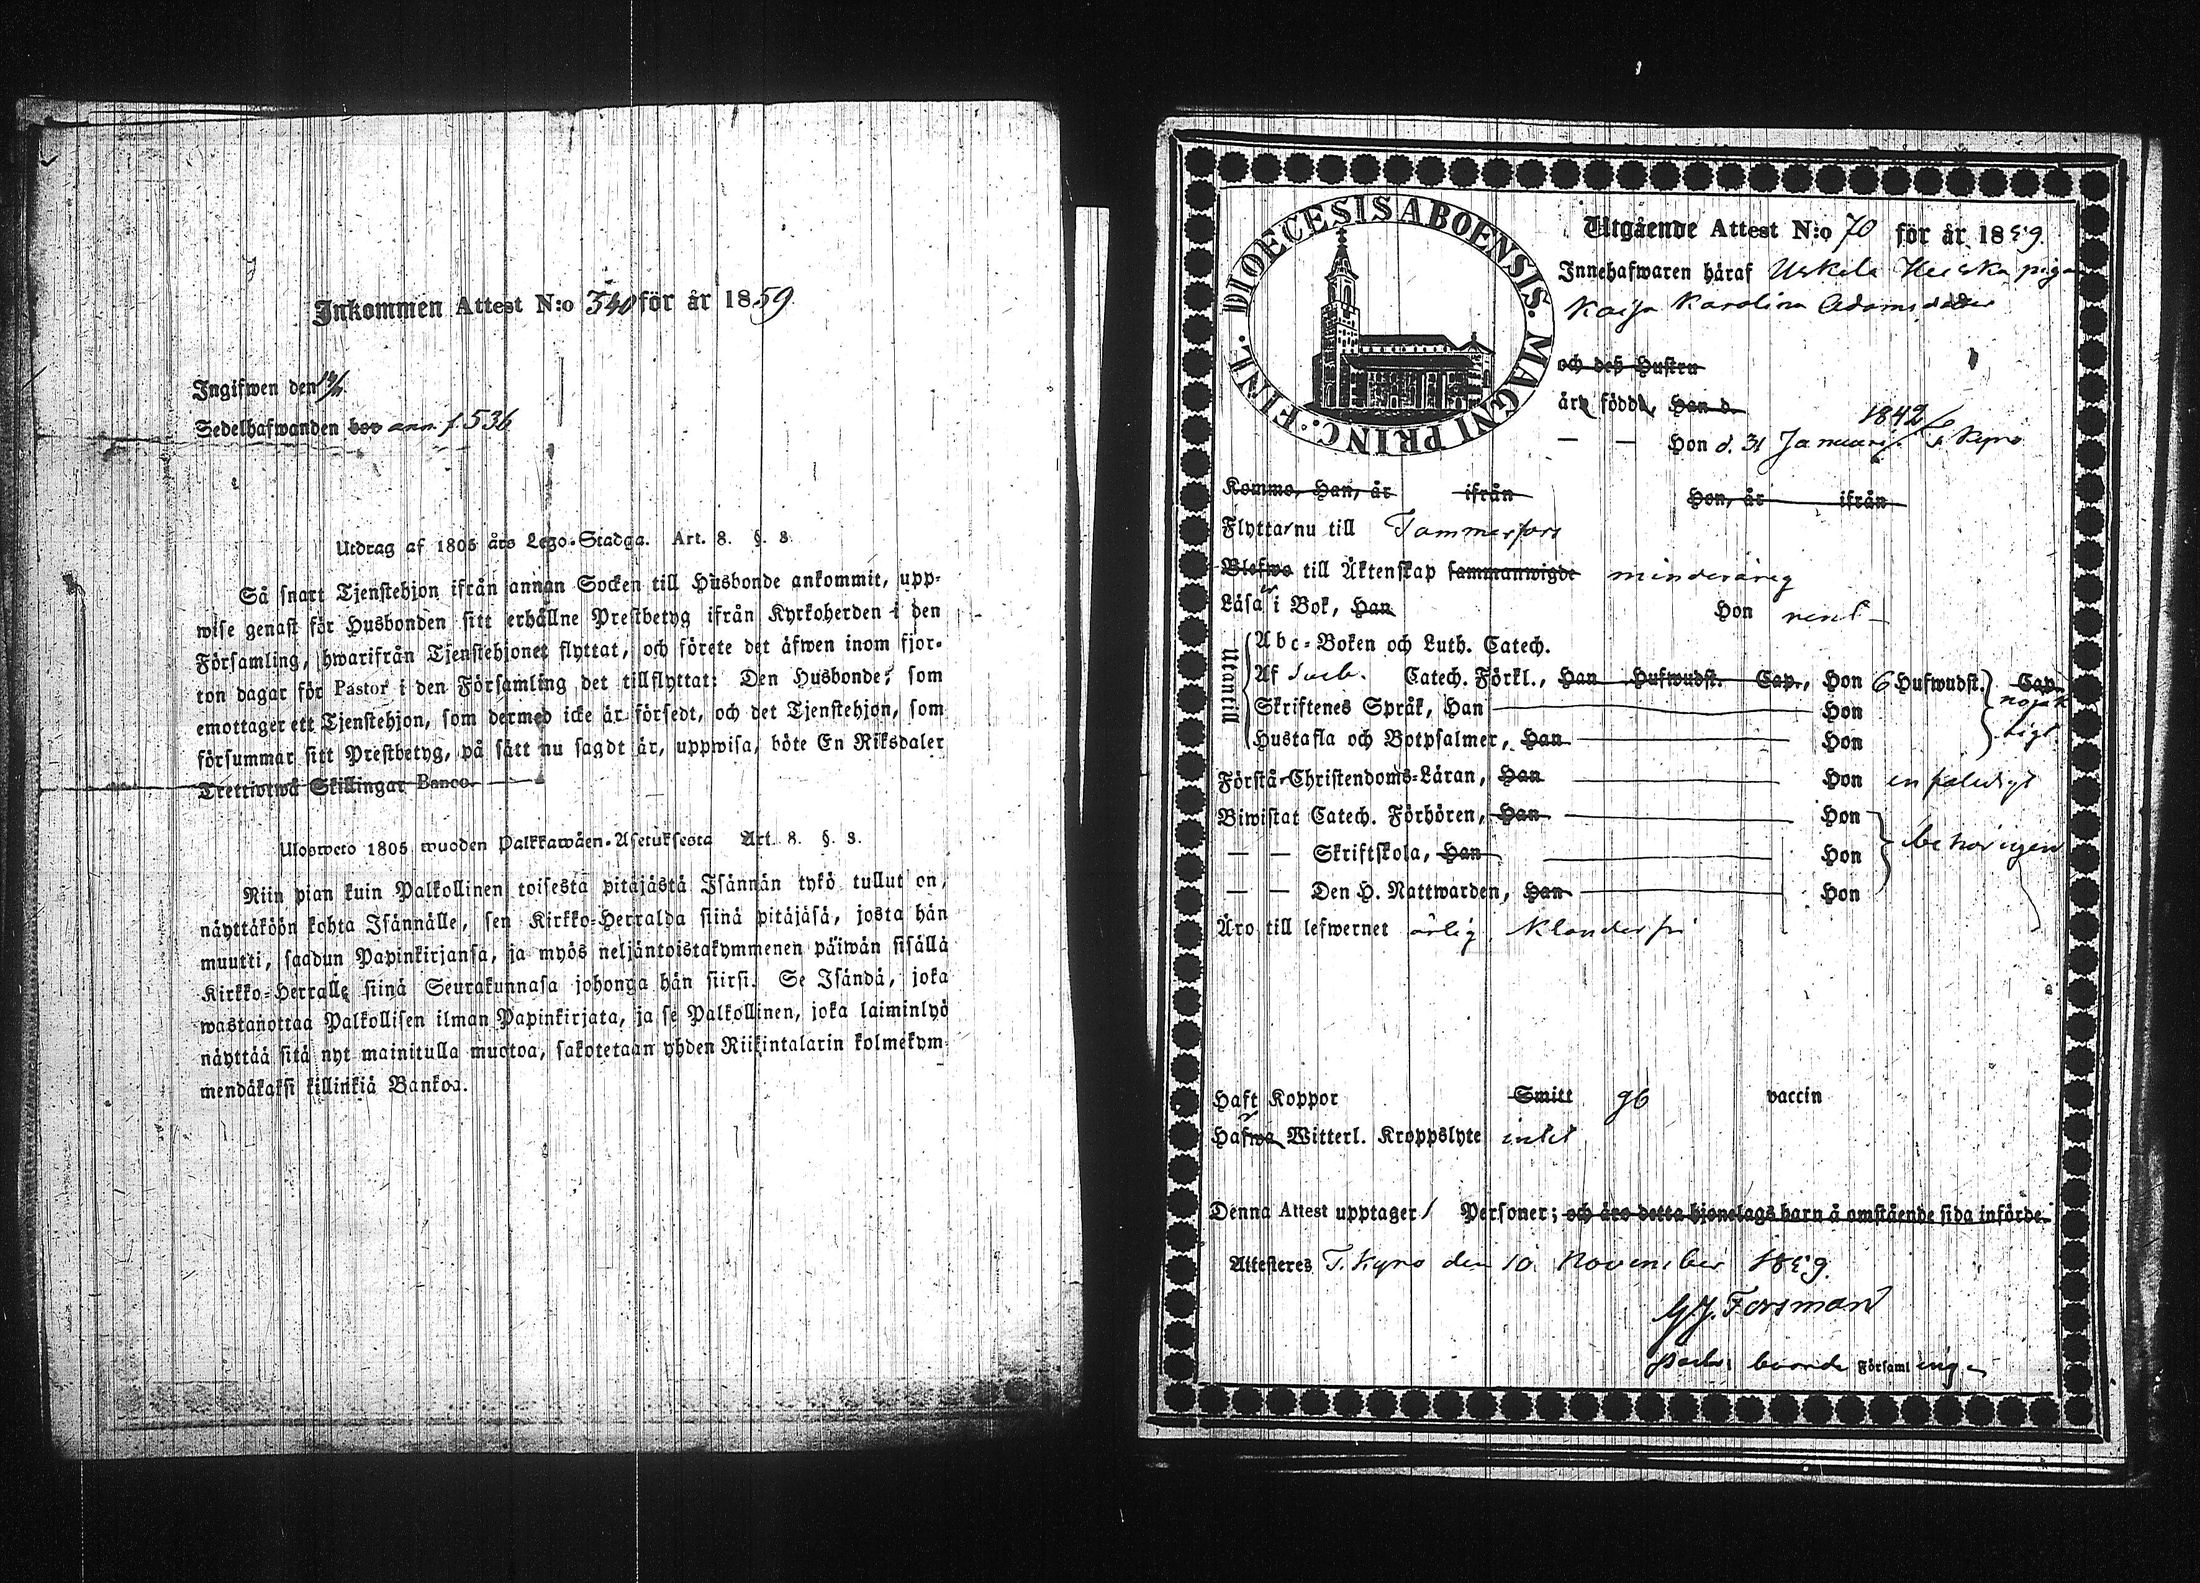 Inkommen Attest N:o 340 för år 1859
Ingifwen den
Sedelhafwanden bor ann. f. 536
Utdrag af 1805 års Lego-Stadga. Art. 8. §. 8.
Så snart Tjenstehjon ifrån annan Socken till Husbonde ankommit, upp-
wise genast för Husbonden sitt erhållne Prestbetyg ifrån Kyrkoherden i den
Församling, hwarifrån Tjenstehjonet flyttat, och förete det äfwen inom fjor-
ton dagar för Pastor i den Församling det tillflyttat: Den Husbonde, som
emottager ett Tjenstehjon, som dermed icke är försedt, och det Tjenstehjon, som
försummar sitt Prestbetyg, på sätt nu sagdt är, uppwisa, böte En Riksdaler
Trettiotwå Skillingar Banco.
Ulosweto 1805 wuoden Palkkawäen-Asetuksesta Art. 8. §. 8.
Niin pian kuin Palkollinen toisesta pitäjästä Isännän tykö tullut on,
näyttäköön kohta Isännälle, sen Kirkko-Herralda siinä pitäjäsä, josta hän
muutti, saadun Papinkirjansa, ja myös neljäntoistakymmenen päiwän sisällä
Kirkko-Herralle siinä Seurakunnasa johonga hän siirsi. Se Isändä, joka
wastanottaa Palkollisen ilman Papinkirjata, ja se Palkollinen, joka laiminlyö
näyttää sitä nyt mainitulla muotoa, sakotetaan yhden Riikintalarin kolmekym-
mendäkaksi killinkiä Bankoa.
DIOECESIS ABOENSIS. MAGNI PRINC. FINL.
Utgående Attest N:o 70 för år 1859.
Innehafwaren häraf Uskela Heiska piga
Kaisa Karolina Adamsdotter
och deß Hustru
äro födde, Han d.
— — Hon d. 31 Januarij 1842 i T. Kyro
Kommo, Han, år ifrån Hon, år ifrån
Flytta nu till Tammerfors
Blefwo till Äktenskap sammanwigde minderårig
Läsa i Bok, Han Hon rent
Utantill
Abc-Boken och Luth. Catech.
Af Sveb. Catech. Förkl., Han Hufwudst. Cap., Hon 6 Hufwudst. Cap.
Skriftenes Språk, Han Hon nöjak
Hustafla och Botpsalmer, Han Hon tigt
Förstå Christendoms-Läran, Han Hon enfaldigt
Biwistat Catech. Förhören, Han Hon
— — Skriftskola, Han Hon behörigen
— — Den H. Nattwarden, Han Hon
Äro till lefwernet ärlig Klanderfri
Haft Koppor Smitt gb vaccin
Hafwa Witterl. Kroppslyte intet
Denna Attest upptager 1 Personer; och äro detta hjonelags barn å omstående sida införde.
Attesteres T. Kyro den 10 November 1859.
G. J. Forsman
Församlingen